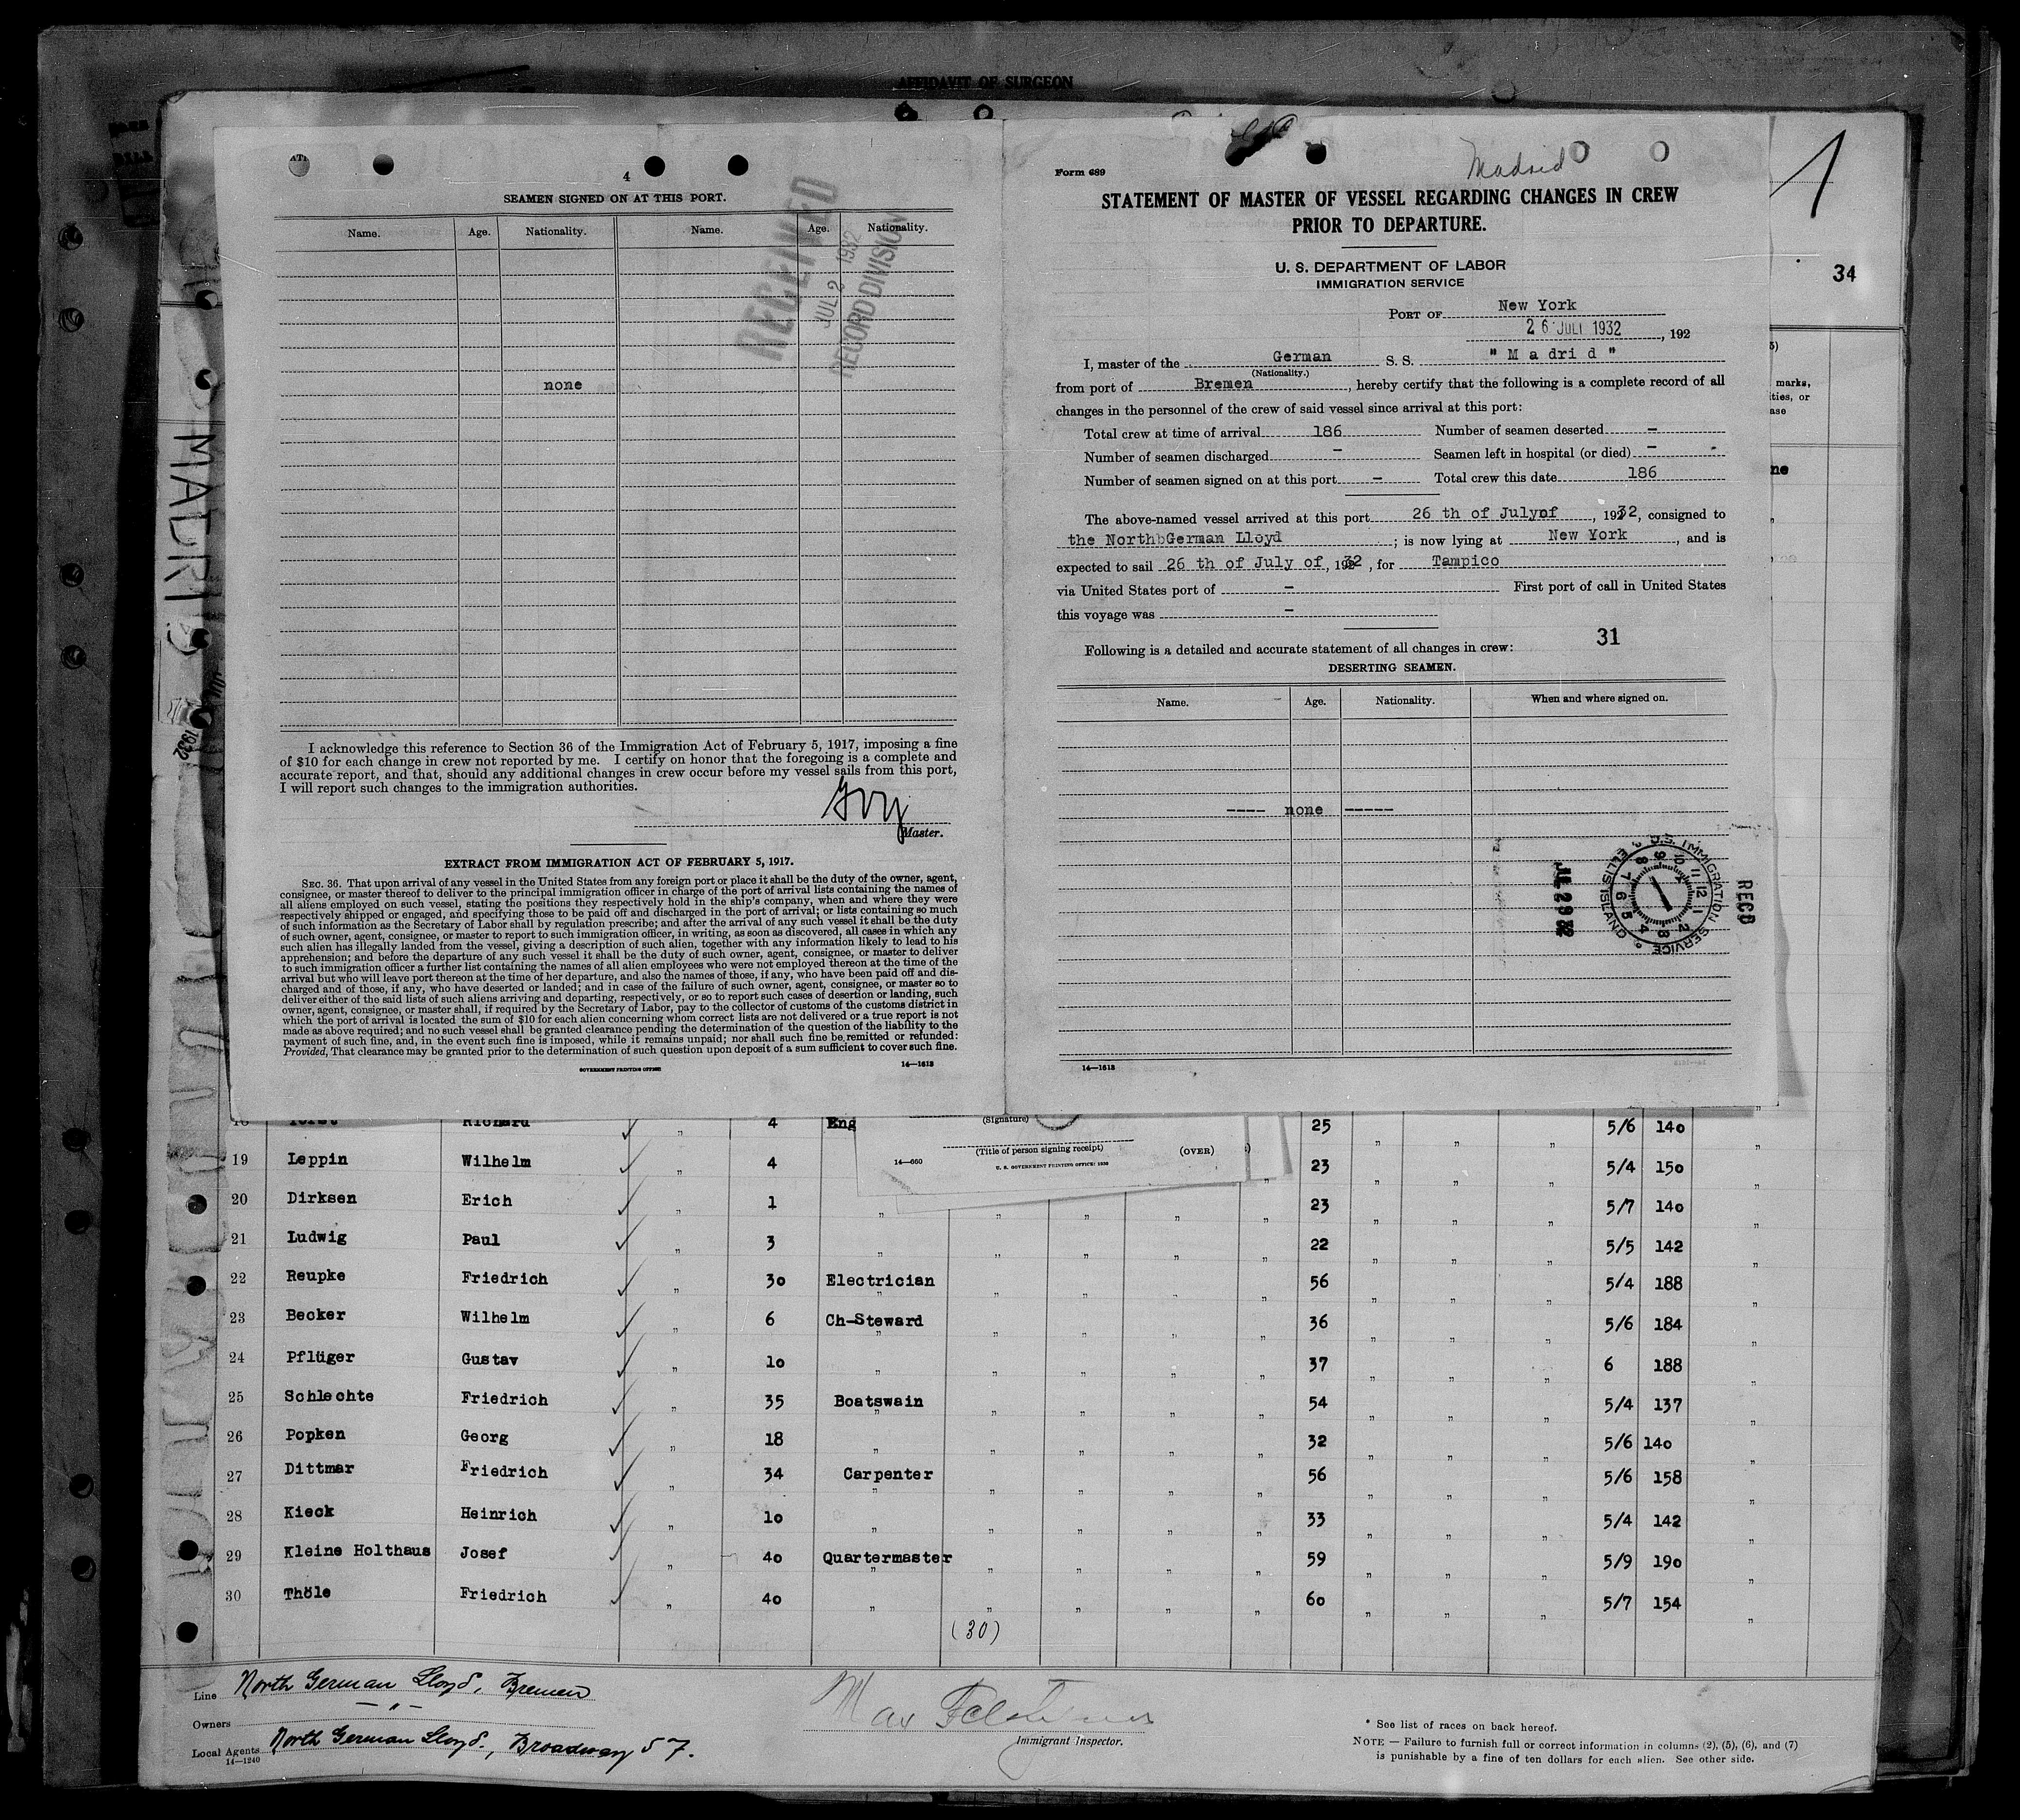 AFFIDAVIT OF SURGEON
4
SEAMEN SIGNED ON AT THIS PORT.
Name. Age. Nationality. Name. Age. Nationality.
RECEIVED
JUL 2 1932
RECORD DIVISION
none
I acknowledge this reference to Section 36 of the Immigration Act of February 5, 1917, imposing a fine
of $10 for each change in crew not reported by me. I certify on honor that the foregoing is a complete and
accurate report, and that, should any additional changes in crew occur before my vessel sails from this port,
I will report such changes to the immigration authorities.
Master.
EXTRACT FROM IMMIGRATION ACT OF FEBRUARY 5, 1917.
SEC. 36. That upon arrival of any vessel in the United States from any foreign port or place it shall be the duty of the owner, agent,
consignee, or master thereof to deliver to the principal immigration officer in charge of the port of arrival lists containing the names of
all aliens employed on such vessel, stating the positions they respectively hold in the ship's company, when and where they were
respectively shipped or engaged, and specifying those to be paid off and discharged in the port of arrival; or lists containing so much
of such information as the Secretary of Labor shall by regulation prescribe; and after the arrival of any such vessel it shall be the duty
of such owner, agent, consignee, or master to report to such immigration officer, in writing, as soon as discovered, all cases in which any
such alien has illegally landed from the vessel, giving a description of such alien, together with any information likely to lead to his
apprehension; and before the departure of any such vessel it shall be the duty of such owner, agent, consignee, or master to deliver
to such immigration officer a further list containing the names of all alien employees who were not employed thereon at the time of the
arrival but who will leave port thereon at the time of her departure, and also the names of those, if any, who have been paid off and dis-
charged and of those, if any, who have deserted or landed; and in case of the failure of such owner, agent, consignee, or master so to
deliver either of the said lists of such aliens arriving and departing, respectively, or so to report such cases of desertion or landing, such
owner, agent, consignee, or master shall, if required by the Secretary of Labor, pay to the collector of customs of the customs district in
which the port of arrival is located the sum of $10 for each alien concerning whom correct lists are not delivered or a true report is not
made as above required; and no such vessel shall be granted clearance pending the determination of the question of the liability to the
payment of such fine, and, in the event such fine is imposed, while it remains unpaid; nor shall such fine be remitted or refunded:
Provided, That clearance may be granted prior to the determination of such question upon deposit of a sum sufficient to cover such fine.
GOVERNMENT PRINTING OFFICE 14—1613
Form 689
Madrid
STATEMENT OF MASTER OF VESSEL REGARDING CHANGES IN CREW
PRIOR TO DEPARTURE.
U. S. DEPARTMENT OF LABOR
IMMIGRATION SERVICE
PORT OF New York
26 JULI 1932, 192
I, master of the German S. S. "Madrid"
(Nationality.)
from port of Bremen, hereby certify that the following is a complete record of all
changes in the personnel of the crew of said vessel since arrival at this port:
Total crew at time of arrival 186 Number of seamen deserted —
Number of seamen discharged — Seamen left in hospital (or died) —
Number of seamen signed on at this port — Total crew this date 186
The above-named vessel arrived at this port 26 th of July of, 1932, consigned to
the North German Lloyd; is now lying at New York, and is
expected to sail 26 th of July of, 1932, for Tampico
via United States port of — First port of call in United States
this voyage was —
31
Following is a detailed and accurate statement of all changes in crew:
DESERTING SEAMEN.
Name. Age. Nationality. When and where signed on.
---- none -----
RECD
JUL 29 32
U.S. IMMIGRATION SERVICE ELLIS ISLAND
14—1613
1
34
marks,
ities, or
ase
ne
MADRID
1932
Richard ✓ " 4 Eng 25 " " " 5/6 140 "
(Signature)
(Title of person signing receipt)
(OVER)
14—660
U. S. GOVERNMENT PRINTING OFFICE: 1930
19 Leppin Wilhelm ✓ " 4 23 " " " 5/4 150 "
20 Dirksen Erich ✓ " 1 " " " " " 23 " " " 5/7 140 "
21 Ludwig Paul ✓ " 3 " " " " " 22 " " " 5/5 142 "
22 Reupke Friedrich ✓ " 30 Electrician " " " " 56 " " " 5/4 188 "
23 Becker Wilhelm ✓ " 6 Ch-Steward " " " " 36 " " " 5/6 184 "
24 Pflüger Gustav ✓ " 10 " " " " " 37 " " " 6 188 "
25 Schlechte Friedrich ✓ " 35 Boatswain " " " " 54 " " " 5/4 137 "
26 Popken Georg ✓ " 18 " " " " " 32 " " " 5/6 140 "
27 Dittmar Friedrich ✓ " 34 Carpenter " " " " 56 " " " 5/6 158 "
28 Kieck Heinrich ✓ " 10 " " " " " 33 " " " 5/4 142 "
29 Kleine Holthaus Josef ✓ " 40 Quartermaster " " " " 59 " " " 5/9 190 "
30 Thöle Friedrich ✓ " 40 " " " " " 60 " " " 5/7 154 "
(30)
Line North German Lloyd, Bremen
Owners — " —
Local Agents North German Lloyd, Broadway 57.
14—1240
Max
Immigrant Inspector.
* See list of races on back hereof.
NOTE — Failure to furnish full or correct information in columns (2), (5), (6), and (7)
is punishable by a fine of ten dollars for each alien. See other side.